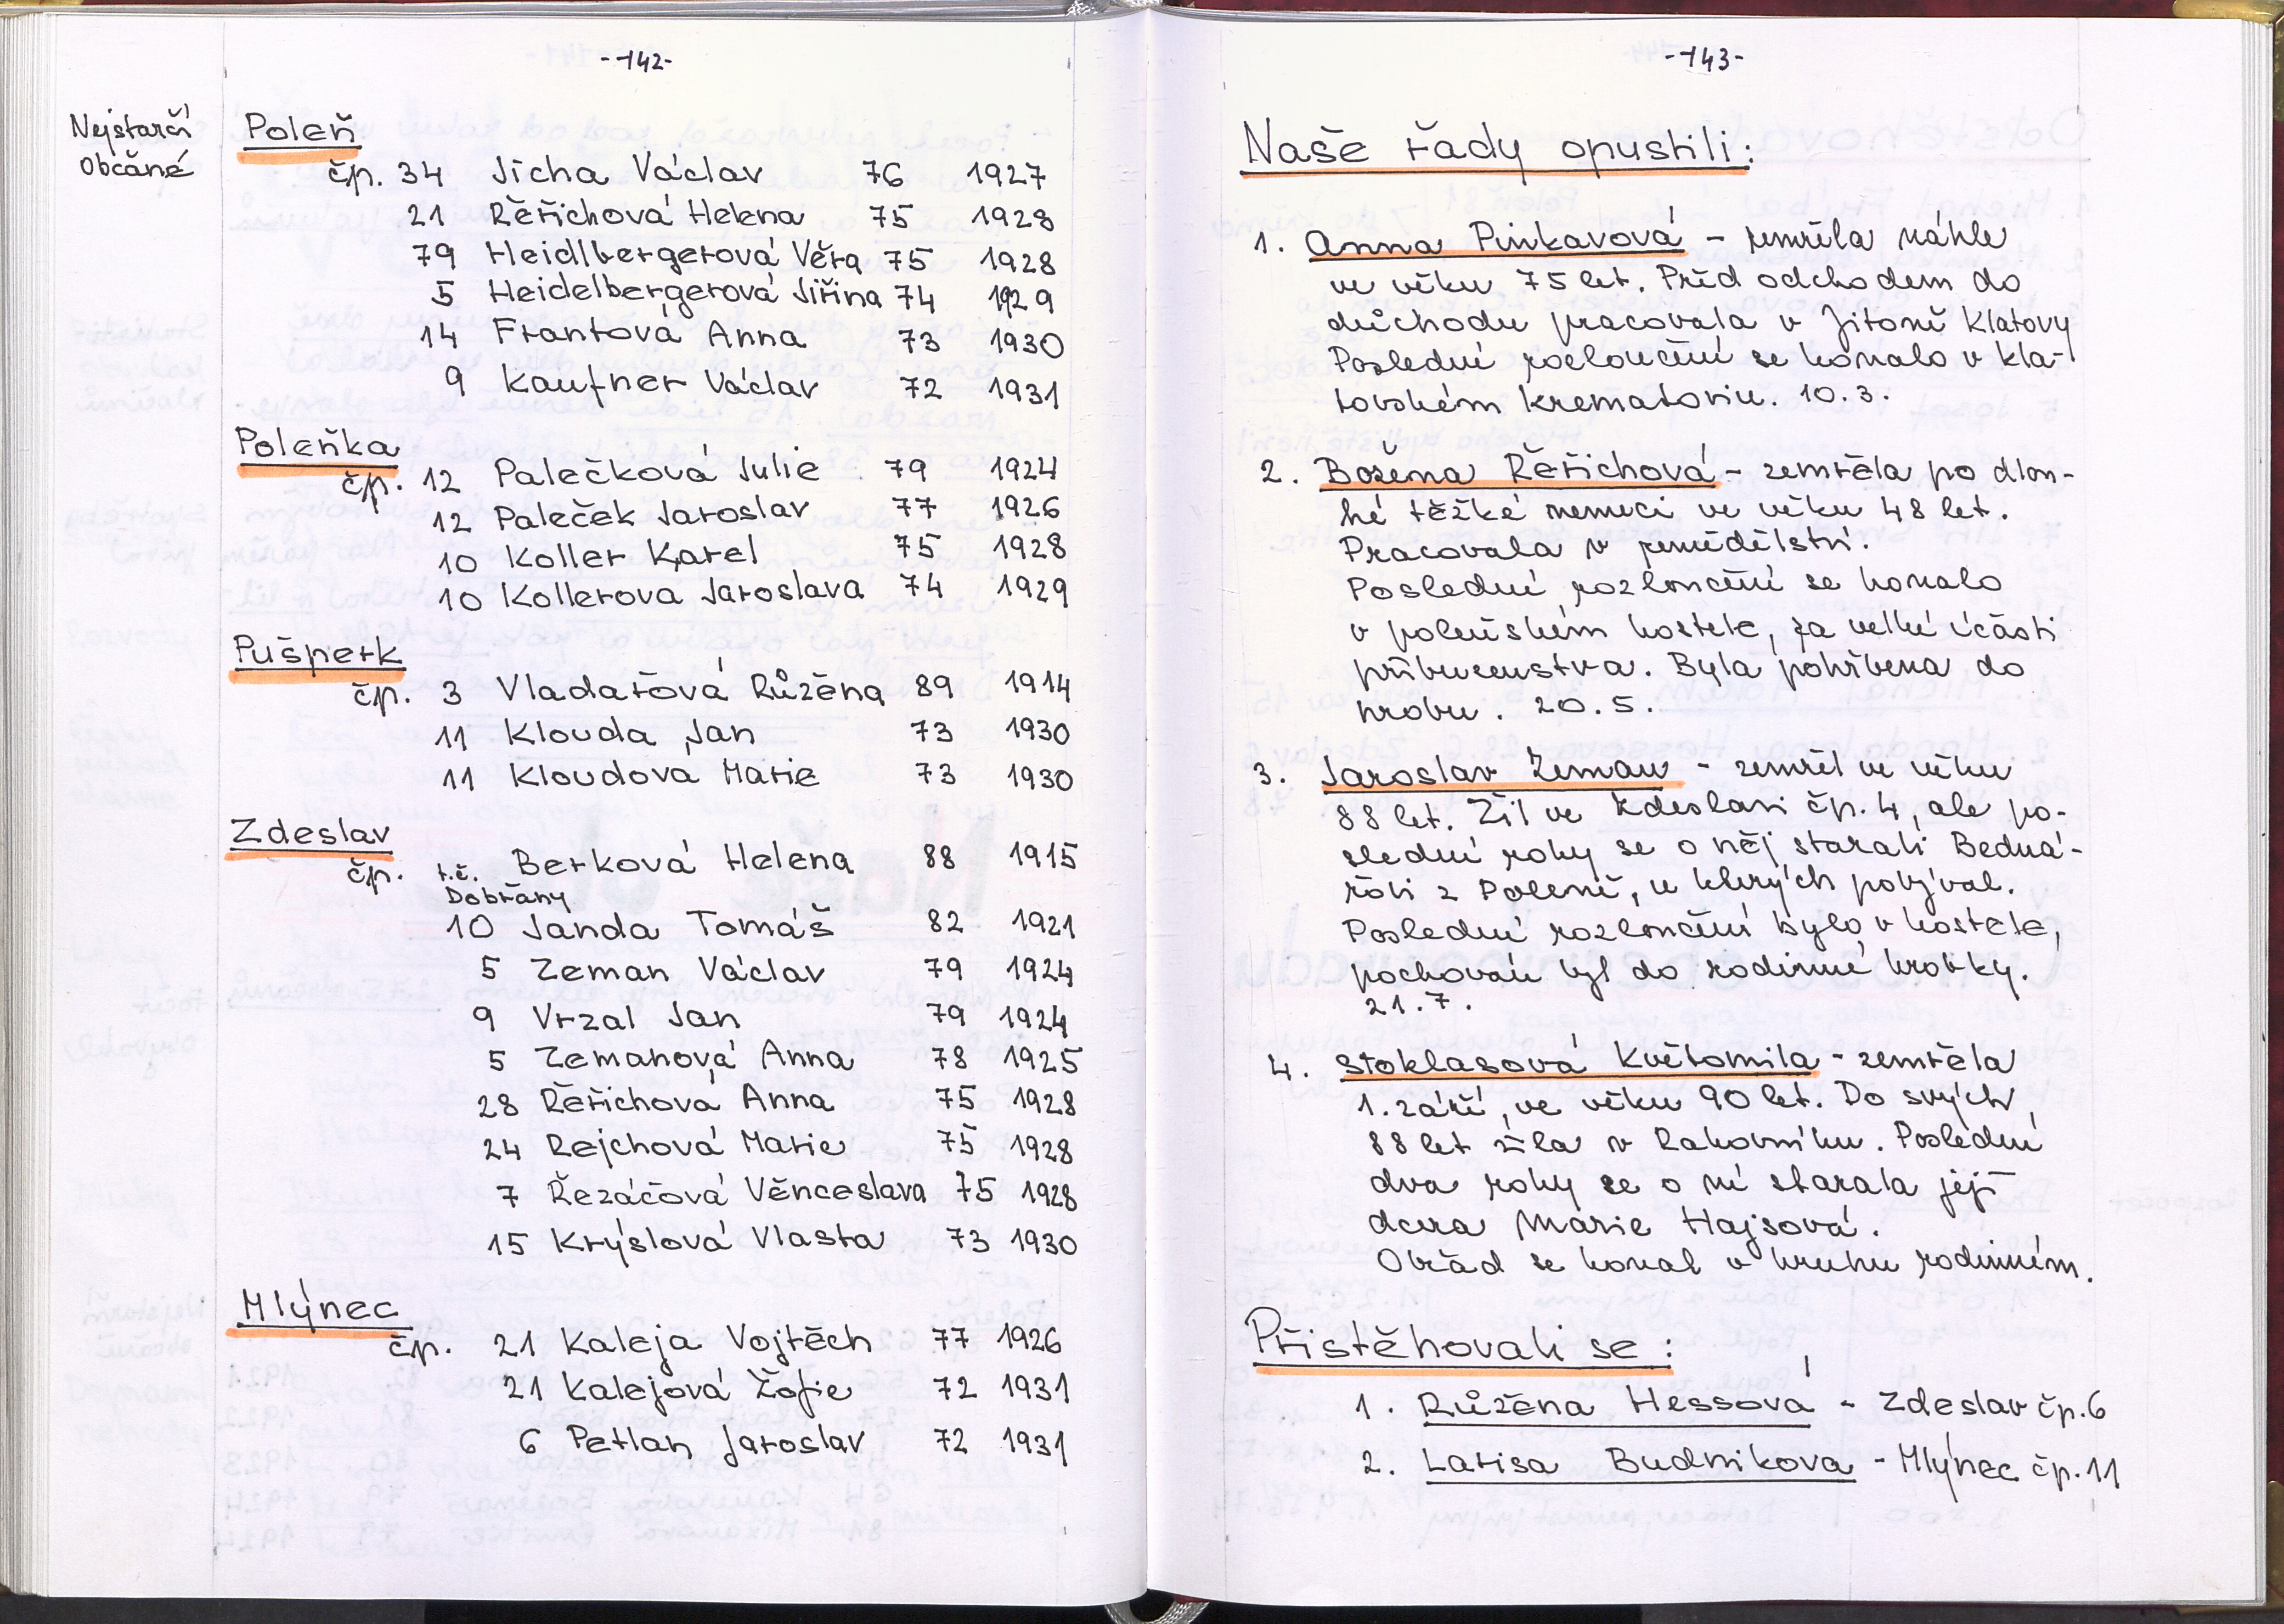 -142-
Nejstarší
občané
Poleň
čp. 34 Jícha Václav 76 1927
21 Řeřichová Helena 75 1928
79 Heidlbergerová Věra 75 1928
5 Heidelbergerová Jiřina 74 1929
14 Frantová Anna 73 1930
9 Kaufner Václav 72 1931
Poleňka
čp. 12 Palečková Julie 79 1924
12 Paleček Jaroslav 77 1926
10 Koller Karel 75 1928
10 Kollerová Jaroslava 74 1929
Pušperk
čp. 3 Vladařová Růžena 89 1914
11 Klouda Jan 73 1930
11 Kloudová Marie 73 1930
Zdeslav
čp. t.č. Berková Helena 88 1915
Dobřany
10 Janda Tomáš 82 1921
5 Zeman Václav 79 1924
9 Vrzal Jan 79 1924
5 Zemanová Anna 78 1925
28 Řeřichová Anna 75 1928
24 Rejchová Marie 75 1928
7 Řezáčová Věnceslava 75 1928
15 Krýslová Vlasta 73 1930
Mlýnec
čp. 21 Kaleja Vojtěch 77 1926
21 Kalejová Žofie 72 1931
6 Petlan Jaroslav 72 1931
-143-
Naše řady opustili:
1. Anna Pinkavová - zemřela náhle
ve věku 75 let. Před odchodem do
důchodu pracovala v Jitoně Klatovy
Poslední rozloučení se konalo v kla-
tovském krematoriu. 10.3.
2. Božena Řeřichová - zemřela po dlou-
hé těžké nemoci ve věku 48 let.
Pracovala v zemědělství.
Poslední rozloučení se konalo
v poleňském kostele, za velké účasti
příbuzenstva. Byla pohřbena do
hrobu. 20.5.
3. Jaroslav Zeman - zemřel ve věku
88 let. Žil ve Zdeslavi čp. 4, ale po-
slední roky se o něj starali Bedná-
řovi z Poleně, u kterých pobýval.
Poslední rozloučení bylo v kostele,
pochován byl do rodinné hrobky.
21.7.
4. Stoklasová Květomila - zemřela
1. září, ve věku 90 let. Do svých
88 let žila v Rakovníku. Poslední
dva roky se o ní starala její
dcera Marie Hajsová.
Obřad se konal v kruhu rodinném.
Přistěhovali se:
1. Růžena Hessová - Zdeslav čp. 6
2. Larisa Budnikova - Mlýnec čp. 11